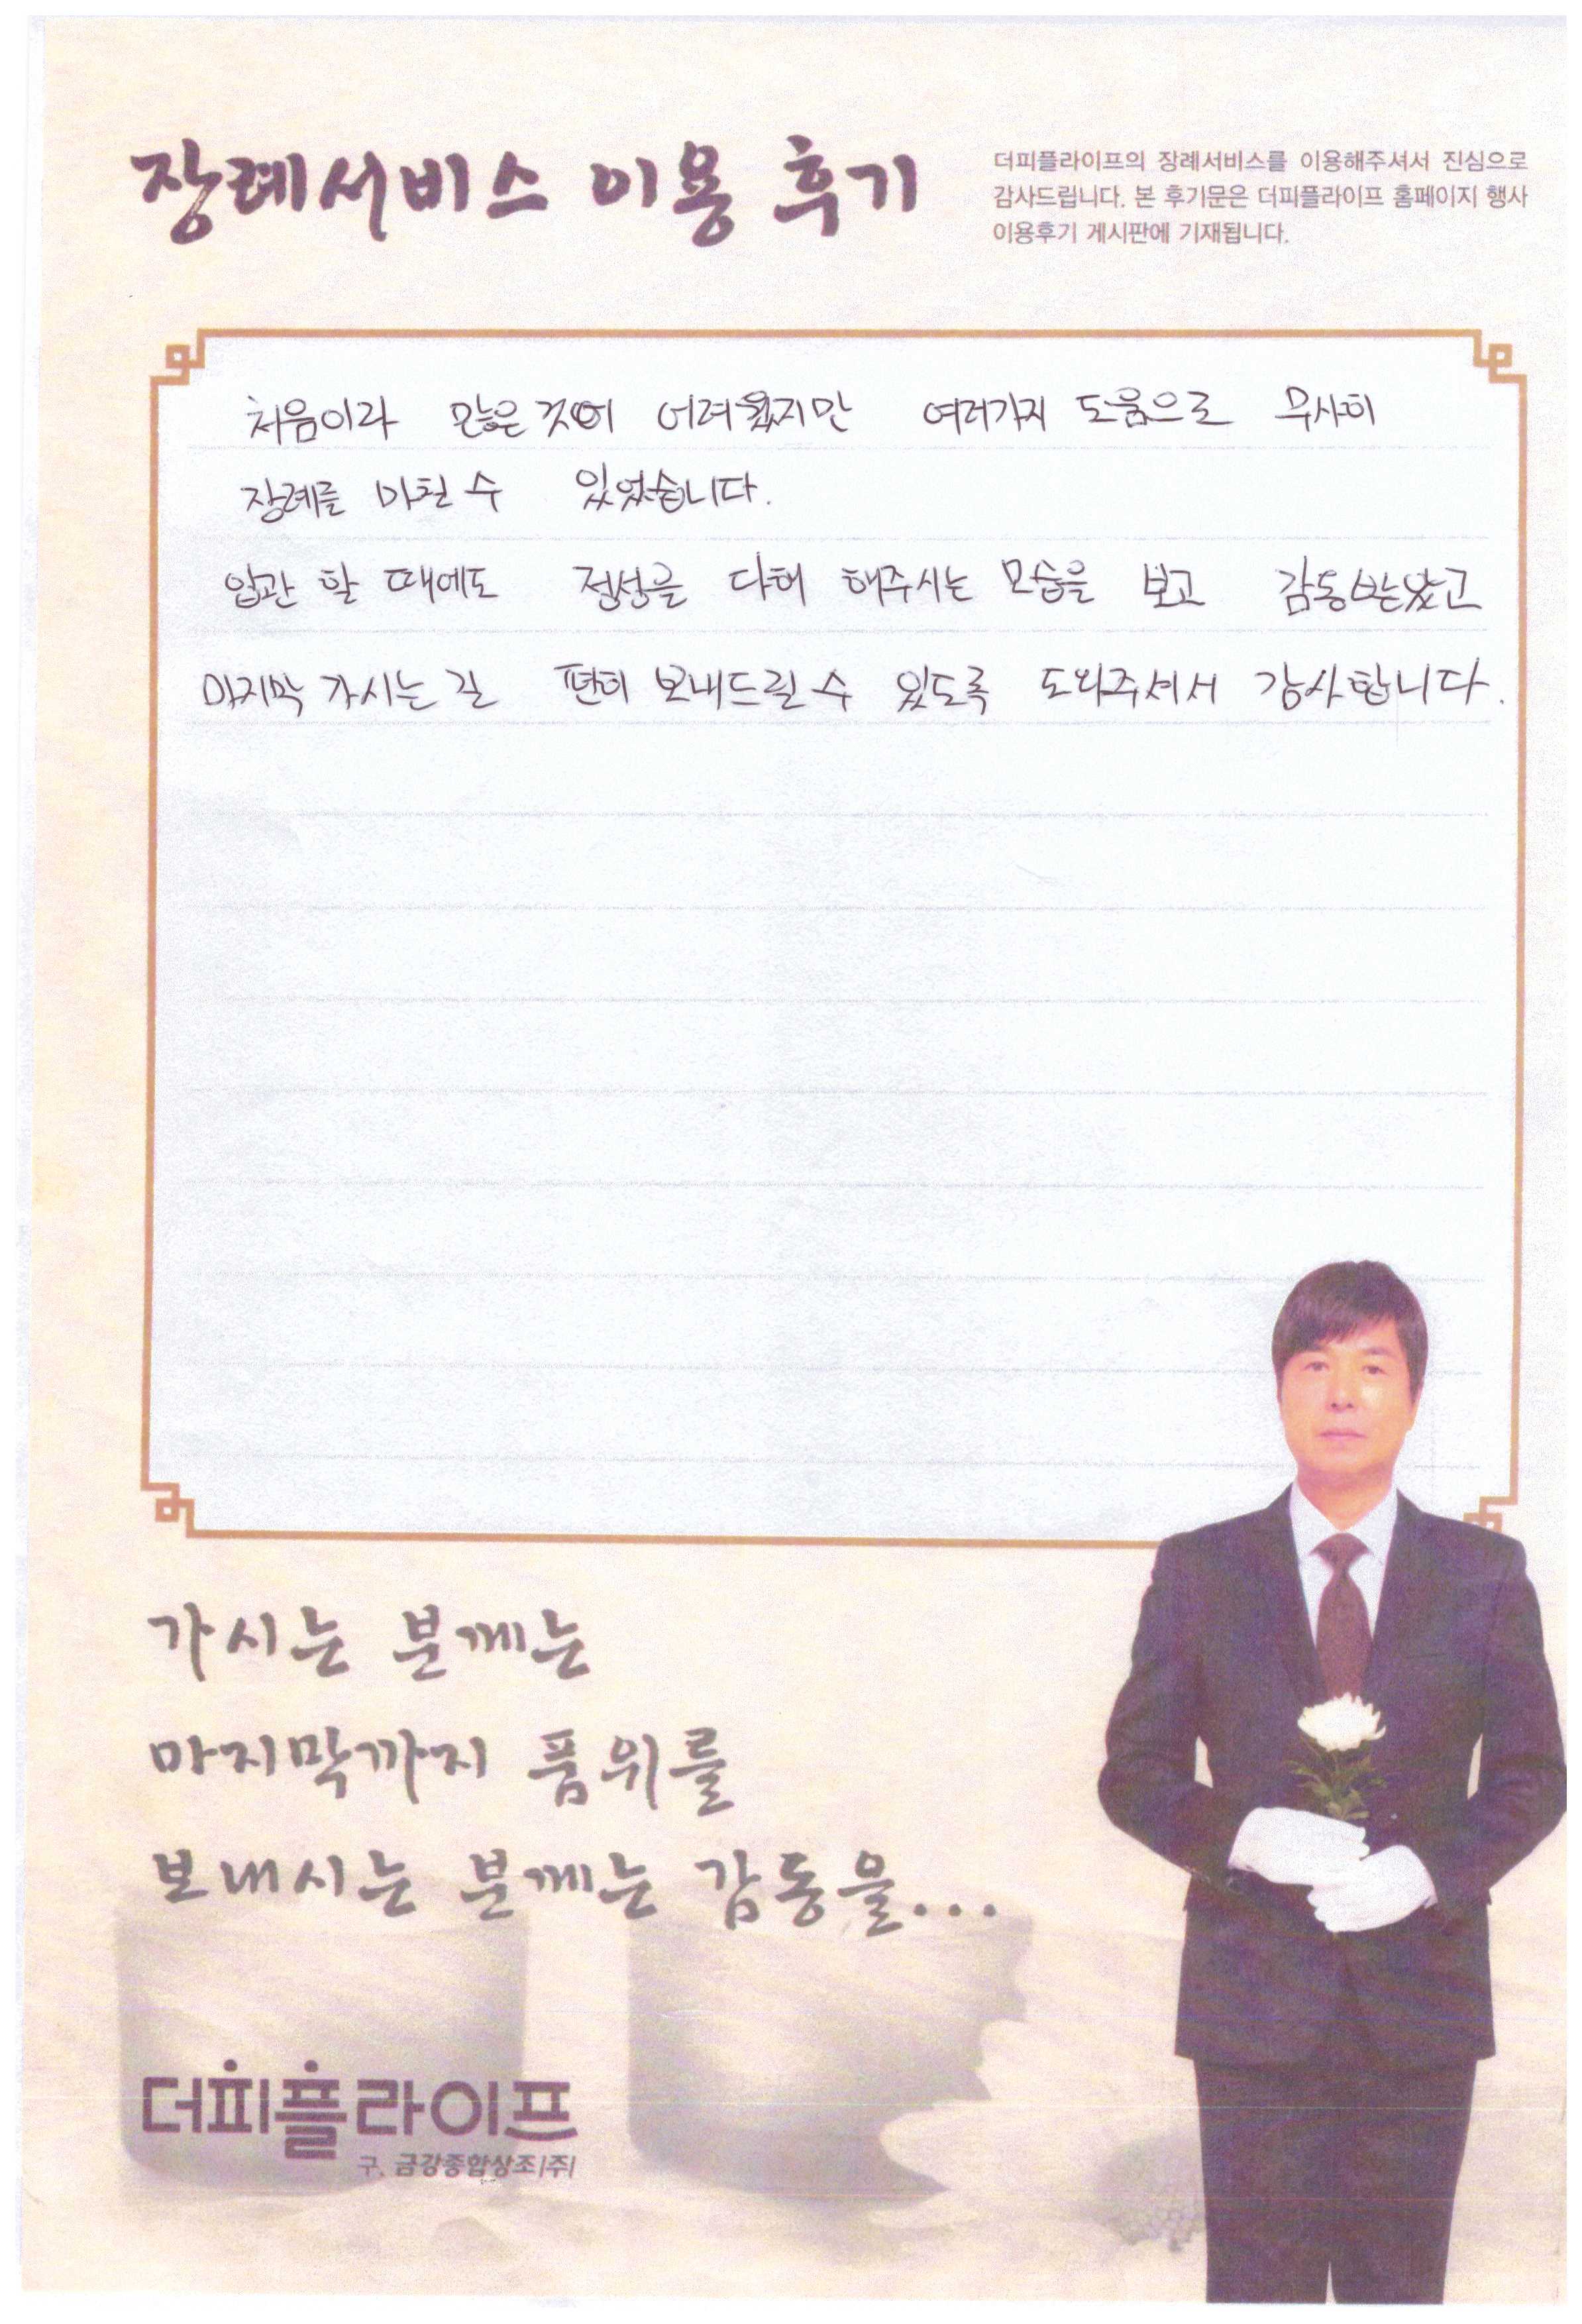 장례서비스 이용 후기
더피플라이프의 장례서비스를 이용해주셔서 진심으로
감사드립니다. 본 후기문은 더피플라이프 홈페이지 행사
이용후기 게시판에 기재됩니다.
처음이라 많은것이 어려웠지만 여러가지 도움으로 무사히
장례를 마칠 수 있었습니다.
입관 할 때에도 정성을 다해 해주시는 모습을 보고 감동받았고
마지막 가시는 길 편히 보내드릴 수 있도록 도와주셔서 감사합니다.
가시는 분께는
마지막까지 품위를
보내시는 분께는 감동을...
더피플라이프
구. 금강종합상조(주)